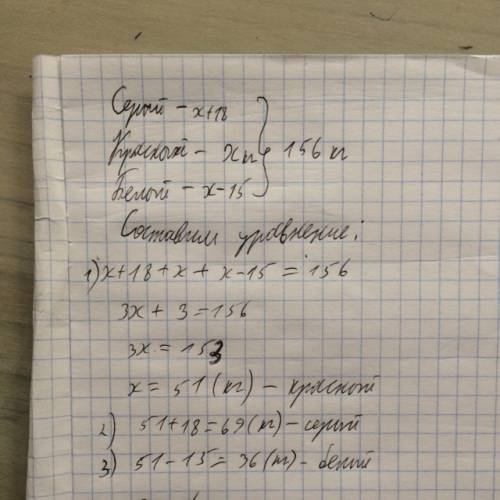 Серый – x+18
Красный – x кг } 156 кг
Белый – x-15
Составим уравнение:
1) x+18+x+x-15=156
3x+3=156
3x=153
x=51(кг) – красной
2) 51+18=69(кг) – серый
3) 51-15=36(кг) – белой